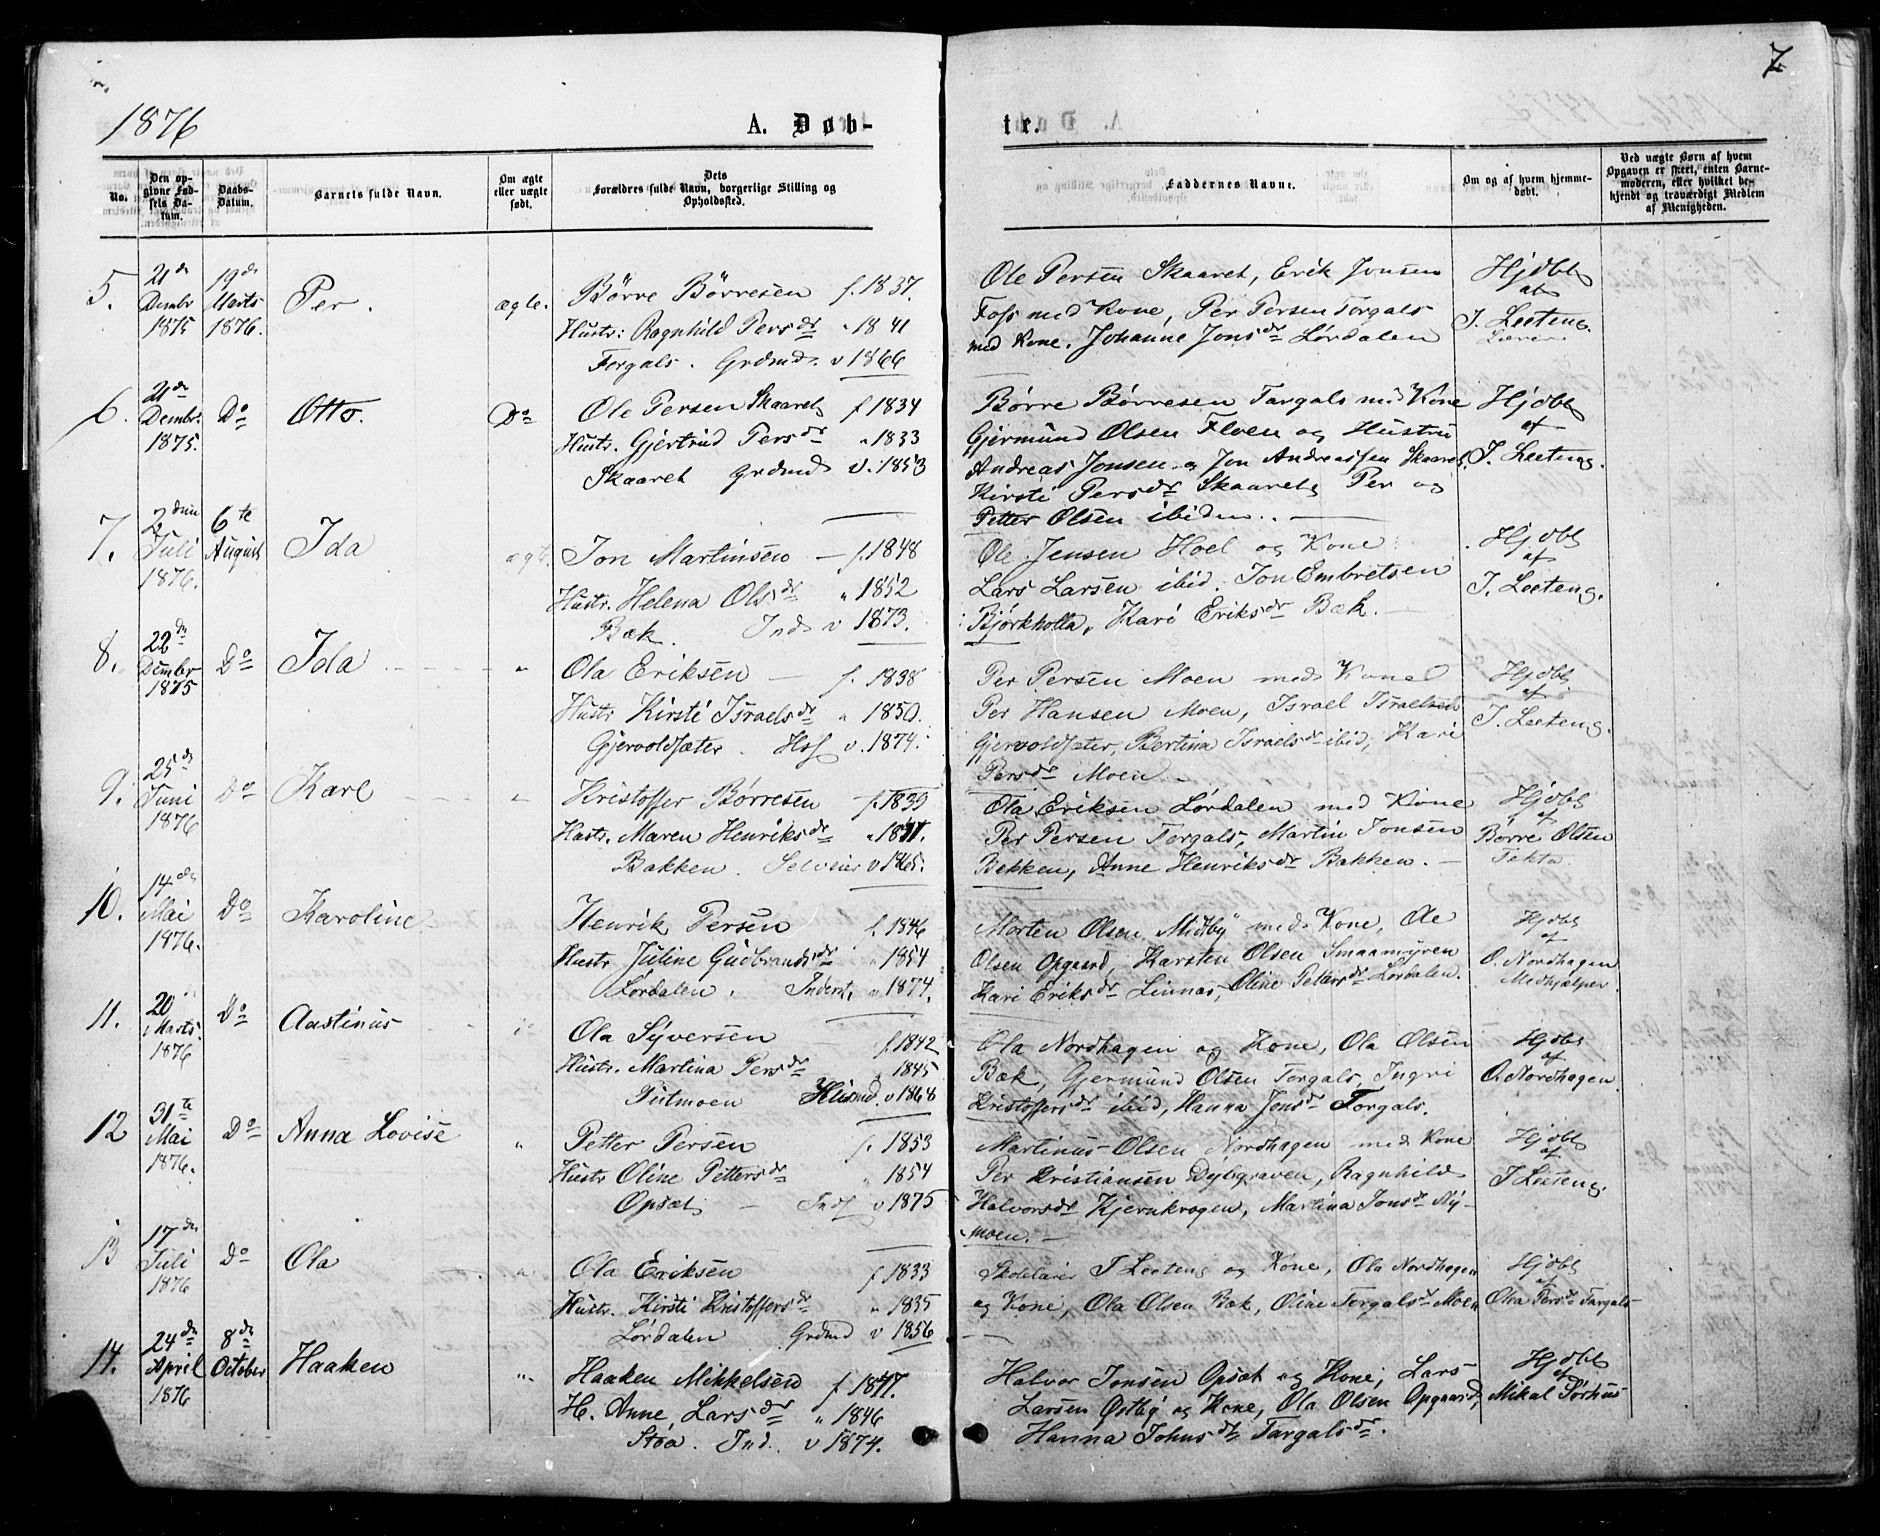 7
1876
A. Døb-
tr.
No.
Den op-
givne Fød-
sels Da-
tum.
Daabs-
Datum.
Barnets fulde Navn.
Om ægte
eller uægte
født.
Dets
Forældres fulde Navn, borgerlige Stilling og
Opholdsted.
Faddernes Navne.
Om og af hvem hjemme-
døbt.
Ved uægte Børn af hvem
Opgaven er skeet, enten Barne-
moderen, eller hvilket be-
kjendt og troværdigt Medlem
af Menigheden.
5.
21de
Dembr
1875
19de
Marts
1876.
Per.
ægte.
Börre Börresen f. 1837.
Hustr: Ragnhild Persdr " 1841
Forgals. Grdmd. v 1866
Ole Persen Skaaret, Erik Jonsen
Foss med Kone, Per Persen Forgals
med Kone. Johanne Jonsdr Lørdalen
Hjdbt
af
J. Leeteng.
6.
21de
Dembr.
1875.
Do
Otto.
Do
Ole Persen Skaaret f 1834
Hustr. Gjertrud Persdr " 1833
Skaaret grdmd v. 1853
Børre Børresen Fargals med Kone
Gjermund Olsen Floen og Hustru
Andreas Jonsen og Jon Andreassen Skaaret,
Kirsti Persdr Skaaret, Per og
Petter Olsen ibidm.
Hjdbt
af
J. Leeteng.
7.
2den
Juli
1876.
6te
August
Ida
ægt.
Jon Martinsen f. 1848
Hustr. Helena Olsdr " 1852
Bæk. Inds v 1873.
Ole Jensen Hoel og Kone
Lars Larsen ibid. Jon Embretsen
Bjørkholta, Kari Eriksdr Bæk.
Hjdbt
af
J. Leeteng.
8.
22de
Dembr
1875
Do
Ida
"
Ola Eriksen f. 1838
Hustr Kirsti Israelsdr " 1850.
Gjervoldsæter. Hsf v. 1874.
Per Persen Moen med Kone
Per Hansen Moen, Israel Israelsen
Gjervoldsæter, Bertina Israelsdr ibid, Kari
Persdr Moen.
Hjdbt
af
J. Leeteng.
9.
25de
Juni
1876
Do
Karl
"
Kristoffer Børresen f. 1839
Hustr. Maren Henriksdr " 1841.
Bakken. Selveier v 1865.
Ola Eriksen Lørdalen med Kone
Per Persen Forgals, Martin Jonsen
Bekken, Anne Henriksdr Bakken.
Hjdbt
af
Børre Olsen
Tekta
10.
14de
Mai
1876.
Do
Karoline
Henrik Persen f. 1846
Hustr Juline Gudbrandsdr " 1854
Lørdalen. Inderst, " 1874.
Morten Olsen Midtby med Kone, Ole
Olsen Opgaard, Karsten Olsen Smaamyren
Kari Eriksdr Linnas, Oline Pettersdr Lørdalen.
Hjdbt
af
O. Nordhagen
Medhjælper.
11.
20
Marts
1876
Do
Aastinus
Do
Ola Syversen f 1842
Hustr. Martina Persdr " 1845
Putmoen Husmd. v 1868
Ola Nordhagen og Kone, Ola Olsen
Bæk, Gjermund Olsen Forgals, Ingri
Kristoffersdr ibid, Hanna Jonsdr Forgals.
Hjdbt
af
O. Nordhagen.
12
31te
Mai
1876.
Do
Anna Lovise
"
Petter Persen f. 1853
Hustr Oline Pettersdr " 1854
Opsæt Inds v 1875
Martinus Olsen Nordhagen med Kone
Per Kristiansen Dybgraven, Ragnhild
Halvorsdr Kjernkrogen, Martina Jonsdr Ny-
moen.
Hjdbt
af
J Leeteng.
13
17de
Juli
1876
Do
Ola
"
Ola Eriksen f 1833
Hustr. Kirsti Kristoffersdr " 1835
Lørdalen Grdmd v 1856
Skolelærer J Leeteng og Kone, Ola Nordhagen
og Kone, Ola Olsen Bæk, Oline Forgalsdr Moen
Hjdbt
af
Olia Persdr Fargals
14.
24de
April
1876
8de
October
Haaken
"
Haaken Mikkelsen f 1847.
H. Anne Larsdr " 1846
Stoa. Ind. v 1874.
Halvor Jonsen Opsæt og Kone, Lars
Larsen Østby og Kone, Ola Olsen Opgaard,
Hanna Johnsdr Fargalsdr.
Hjdbt
af
Mikal Sørhus